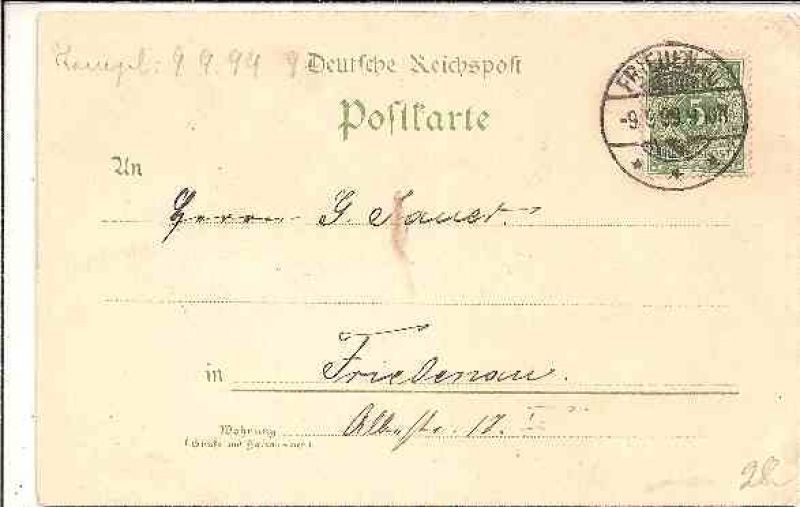 9.9.99 9
Deutsche Reichspost
Postkarte
FRIEDENAU
-9.9.99.9-10N.
* * *
5
An
Herrn G. Sauer.
in Friedenau.
Wohnung
(Straße und Hausnummer)
17. I